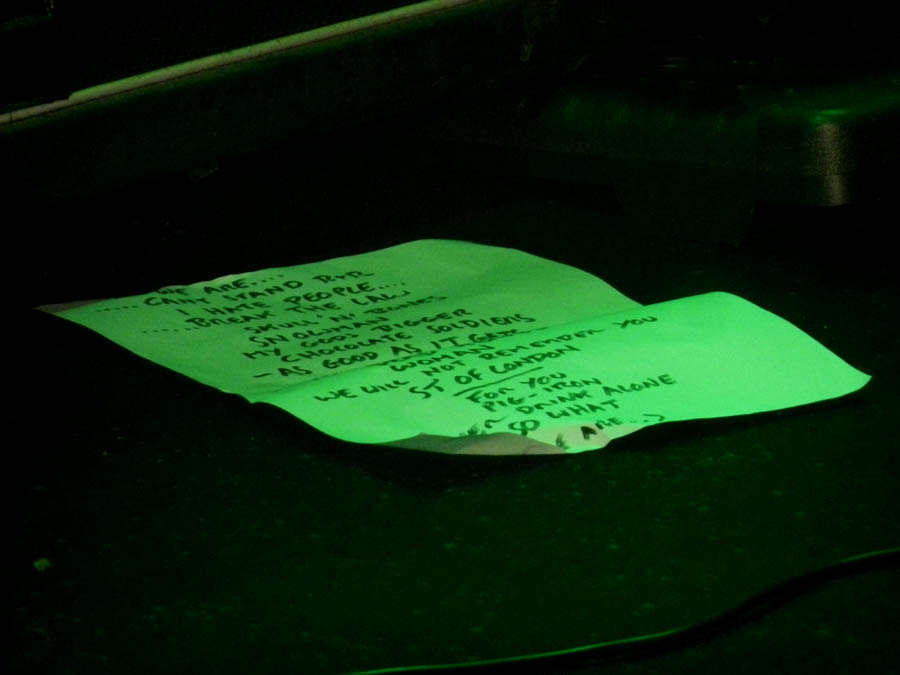 WE ARE....
.....CAN'T STAND R+R
I HATE PEOPLE....
.....BREAK THE LAW
SKULL IN
MY GOLD DIGGER
- CHOCOLATE SOLDIERS
- AS GOOD AS IT GETS
WOMAN
WE WILL NOT REMEMBER YOU
ST OF LONDON
FOR YOU
PIG-IRON
DRINK ALONE
SO WHAT
ARE...